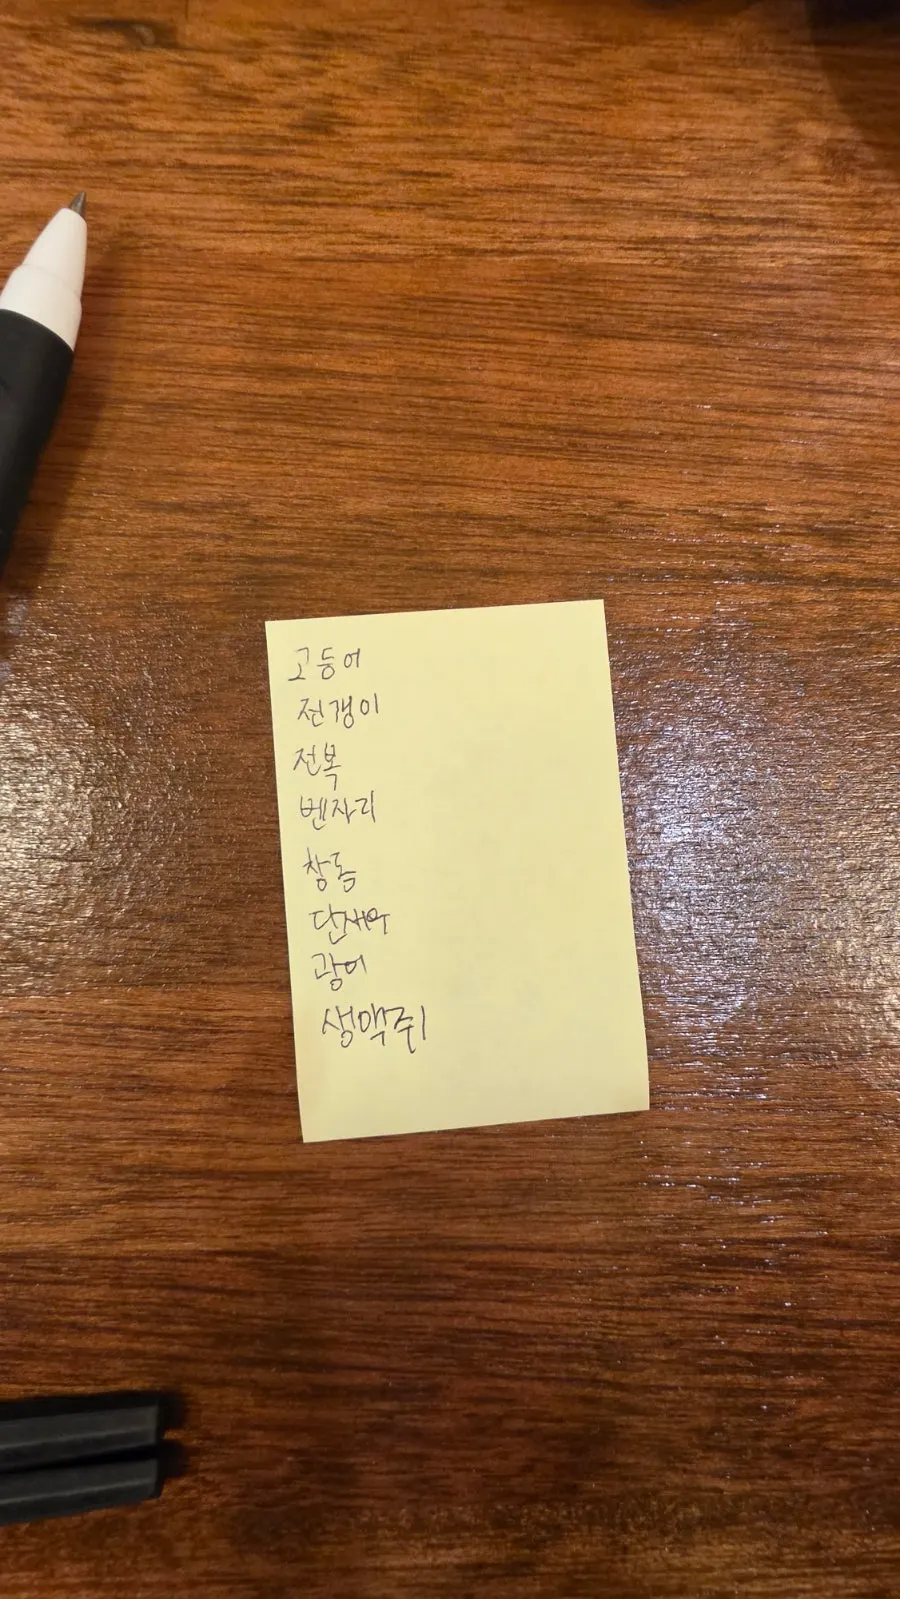 고등어
전갱이
전복
벤자리
참돔
단새우
광어
생맥주1